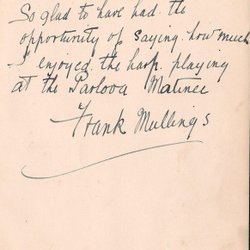 So glad to have had the
opportunity of saying how much
I enjoyed the harp playing
at the Pavlova Matinee
Frank Mullings